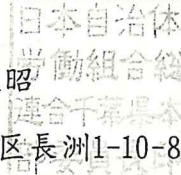 日本自治体
労働組合総
昭
連合千葉県本
区長洲1-10-8